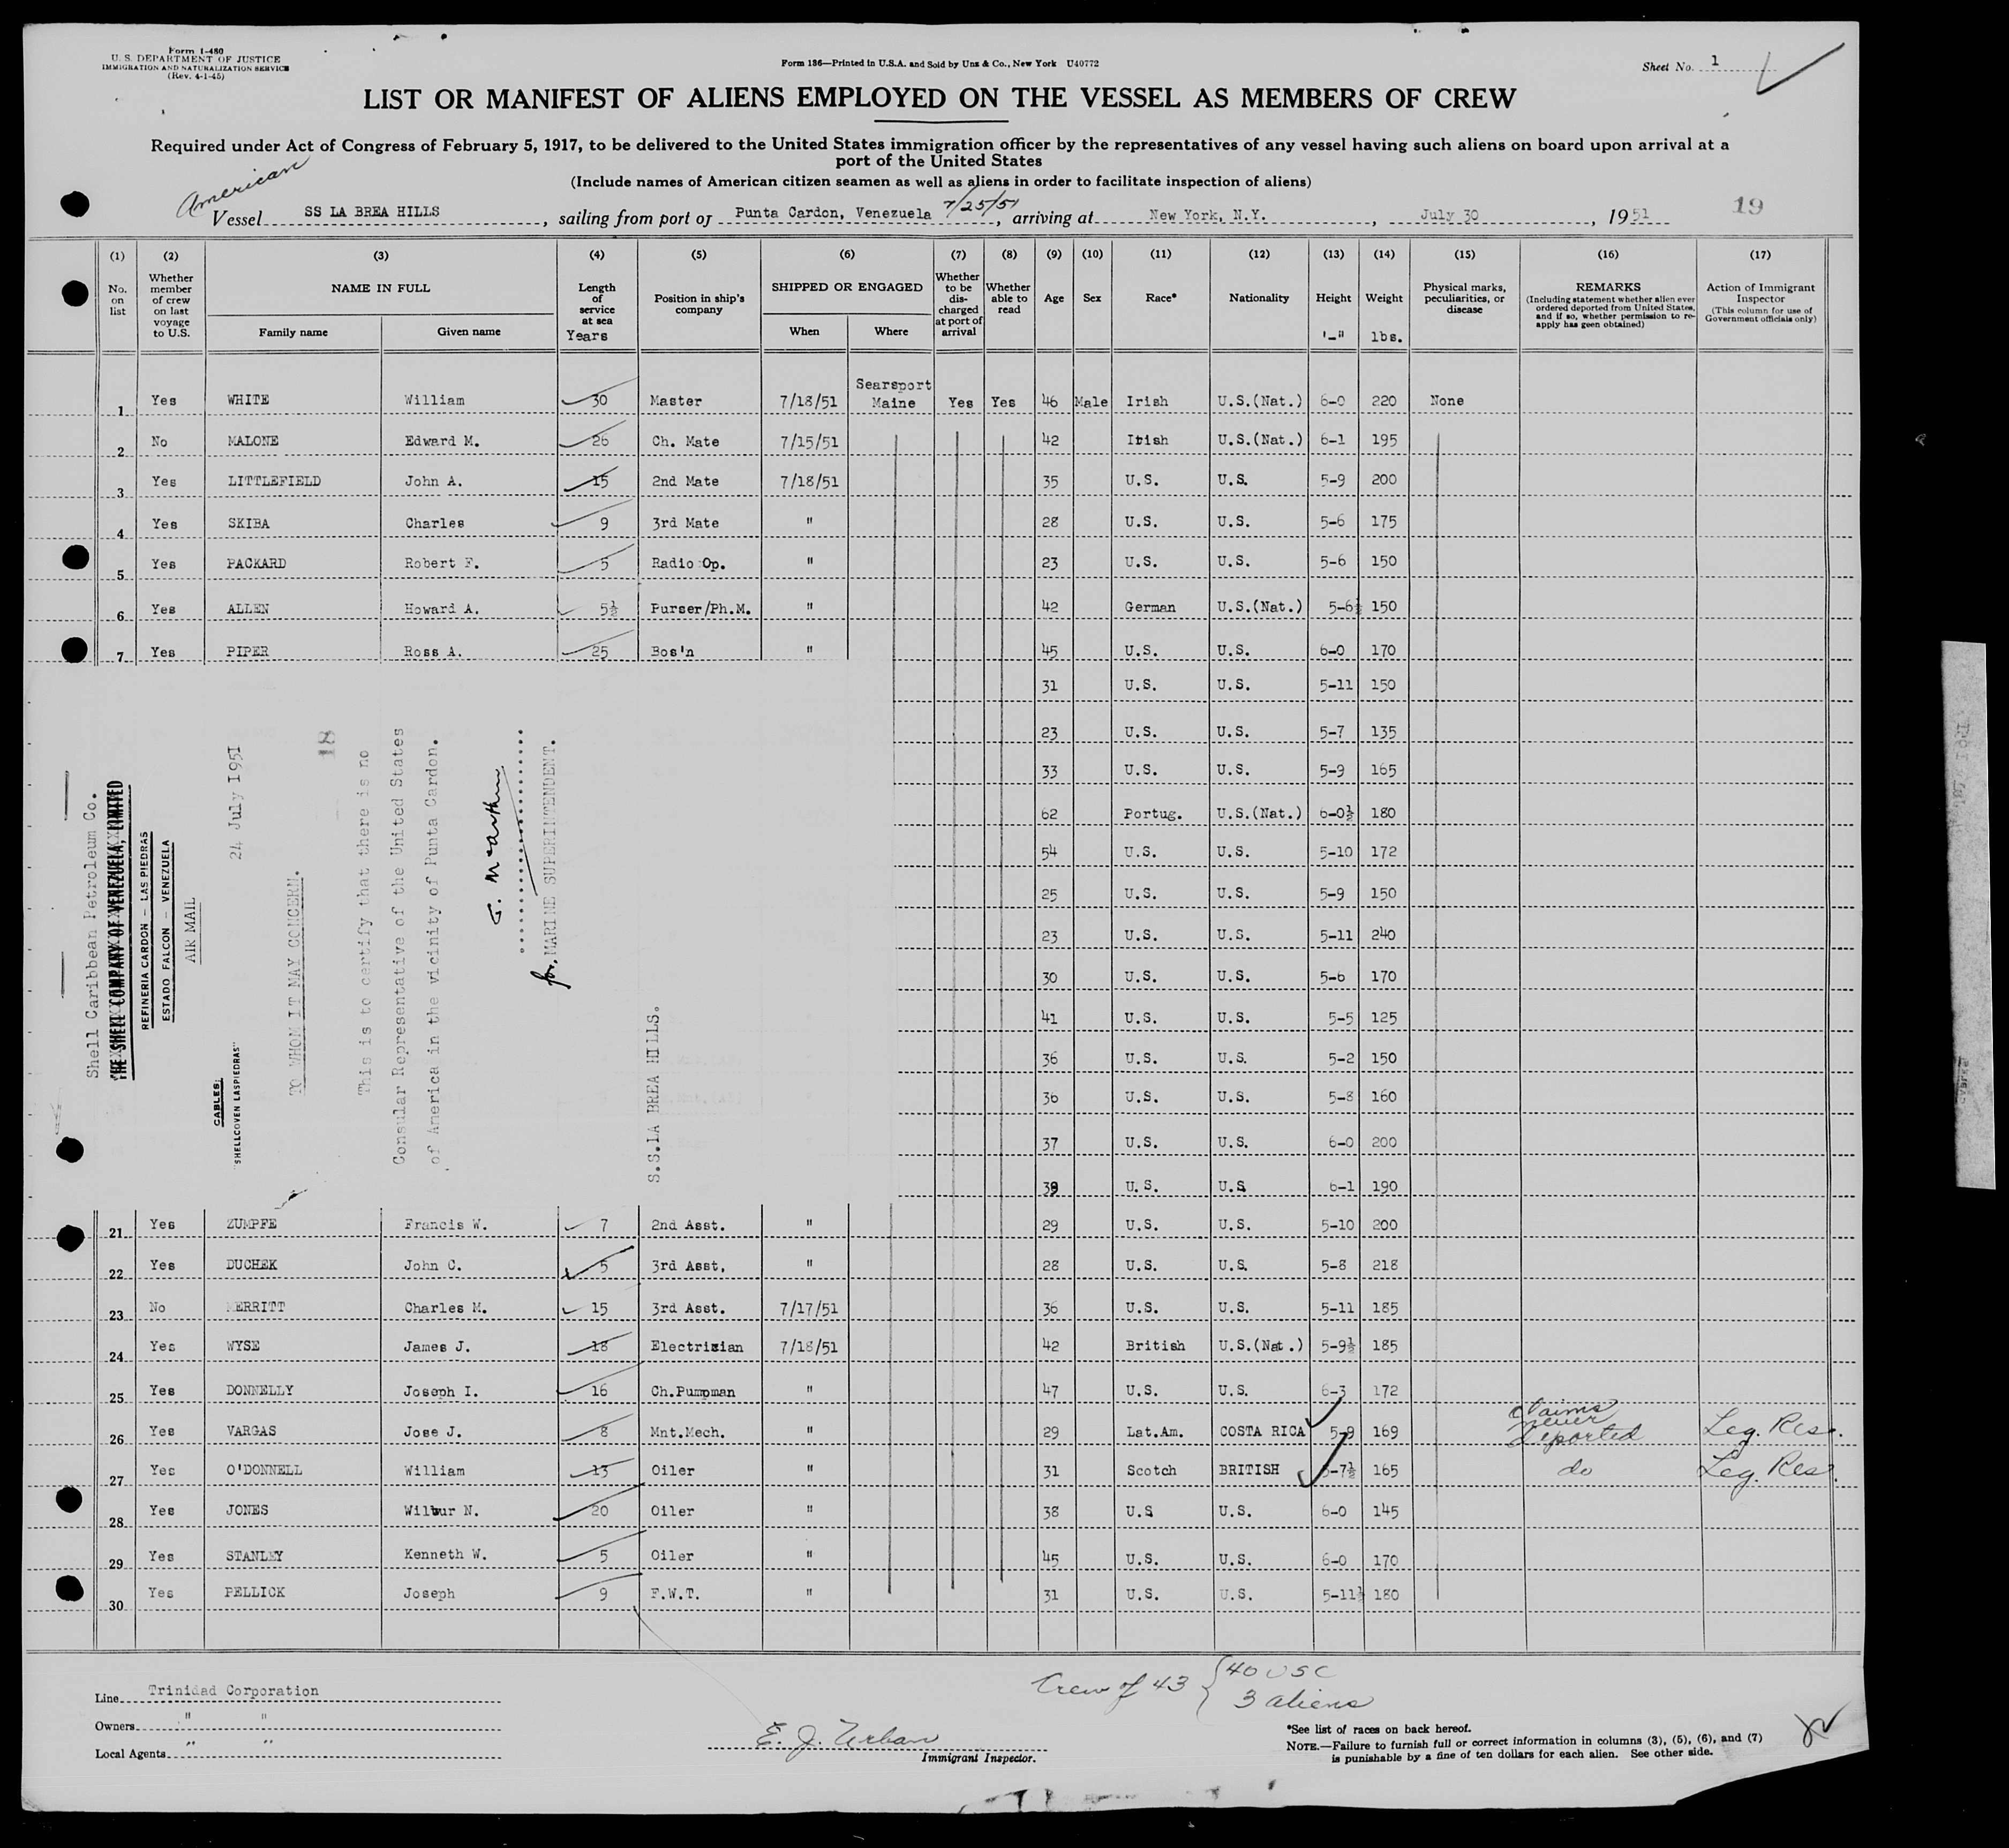 Form I-480
U. S. DEPARTMENT OF JUSTICE
IMMIGRATION AND NATURALIZATION SERVICE
(Rev. 4-1-45)
Form 136—Printed in U.S.A. and Sold by Unz & Co., New York U40772
Sheet No. 1
LIST OR MANIFEST OF ALIENS EMPLOYED ON THE VESSEL AS MEMBERS OF CREW
Required under Act of Congress of February 5, 1917, to be delivered to the United States immigration officer by the representatives of any vessel having such aliens on board upon arrival at a
port of the United States
(Include names of American citizen seamen as well as aliens in order to facilitate inspection of aliens)
American
Vessel SS LA BREA HILLS, sailing from port of Punta Cardon, Venezuela 7/25/51, arriving at New York, N.Y., July 30, 1951
19
(1) (2) (3) (4) (5) (6) (7) (8) (9) (10) (11) (12) (13) (14) (15) (16) (17)
No. on list
Whether member of crew on last voyage to U.S.
NAME IN FULL
Family name Given name
Length of service at sea Years
Position in ship's company
SHIPPED OR ENGAGED
When Where
Whether to be discharged at port of arrival
Whether able to read
Age
Sex
Race*
Nationality
Height '-"
Weight lbs.
Physical marks, peculiarities, or disease
REMARKS
(Including statement whether alien ever ordered deported from United States, and if so, whether permission to re-apply has geen obtained)
Action of Immigrant Inspector
(This column for use of Government officials only)
1 Yes WHITE William 30 Master 7/18/51 Searsport Maine Yes Yes 46 Male Irish U.S.(Nat.) 6-0 220 None
2 No MALONE Edward M. 26 Ch. Mate 7/15/51 42 Irish U.S.(Nat.) 6-1 195
3 Yes LITTLEFIELD John A. 15 2nd Mate 7/18/51 35 U.S. U.S. 5-9 200
4 Yes SKIBA Charles 9 3rd Mate " 28 U.S. U.S. 5-6 175
5 Yes PACKARD Robert F. 5 Radio Op. " 23 U.S. U.S. 5-6 150
6 Yes ALLEN Howard A. 5½ Purser/Ph.M. " 42 German U.S.(Nat.) 5-6½ 150
7 Yes PIPER Ross A. 25 Bos'n " 45 U.S. U.S. 6-0 170
31 U.S. U.S. 5-11 150
23 U.S. U.S. 5-7 135
33 U.S. U.S. 5-9 165
62 Portug. U.S.(Nat.) 6-0½ 180
54 U.S. U.S. 5-10 172
25 U.S. U.S. 5-9 150
23 U.S. U.S. 5-11 240
30 U.S. U.S. 5-6 170
41 U.S. U.S. 5-5 125
36 U.S. U.S. 5-2 150
36 U.S. U.S. 5-8 160
37 U.S. U.S. 6-0 200
39 U.S. U.S 6-1 190
Shell Caribbean Petroleum Co.
THE SHELL COMPANY OF VENEZUELA, LIMITED
REFINERIA CARDON — LAS PIEDRAS
ESTADO FALCON — VENEZUELA
AIR MAIL
CABLES:
"SHELLCOVEN LASPIEDRAS"
24 July I95I
TO WHOM IT MAY CONCERN.
18
This is to certify that there is no
Consular Representative of the United States
of America in the vicinity of Punta Cardon.
for. MARINE SUPERINTENDENT.
S.S.LA BREA HILLS.
21 Yes ZUMPFE Francis W. 7 2nd Asst. " 29 U.S. U.S. 5-10 200
22 Yes DUCHEK John C. 5 3rd Asst. " 28 U.S. U.S. 5-8 218
23 No MERRITT Charles M. 15 3rd Asst. 7/17/51 36 U.S. U.S. 5-11 185
24 Yes WYSE James J. 18 Electrician 7/18/51 42 British U.S.(Nat.) 5-9½ 185
25 Yes DONNELLY Joseph I. 16 Ch.Pumpman " 47 U.S. U.S. 6-3 172
26 Yes VARGAS Jose J. 8 Mnt.Mech. " 29 Lat.Am. COSTA RICA 5-9 169 claims never deported Leg. Res.
27 Yes O'DONNELL William 13 Oiler " 31 Scotch BRITISH 5-7½ 165 do Leg. Res.
28 Yes JONES Wilbur N. 20 Oiler " 38 U.S U.S. 6-0 145
29 Yes STANLEY Kenneth W. 5 Oiler " 45 U.S. U.S. 6-0 170
30 Yes PELLICK Joseph 9 F.W.T. " 31 U.S. U.S. 5-11½ 180
Crew of 43 { 40 USC
3 aliens
Line Trinidad Corporation
Owners " "
Local Agents " "
E. J. Urban
Immigrant Inspector.
*See list of races on back hereof.
NOTE.—Failure to furnish full or correct information in columns (3), (5), (6), and (7)
is punishable by a fine of ten dollars for each alien. See other side.